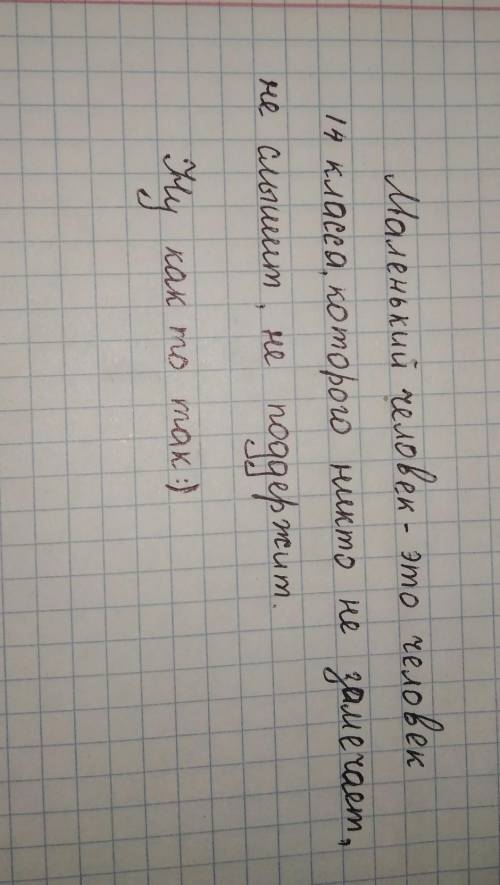 Маленький человек - это человек
14 класса, которого никто не замечает,
не слышит, не поддержит.
Ну как то так :)